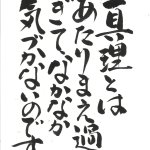 真理とは
あたりまえ過
ぎて、なかなか
気づかないのです